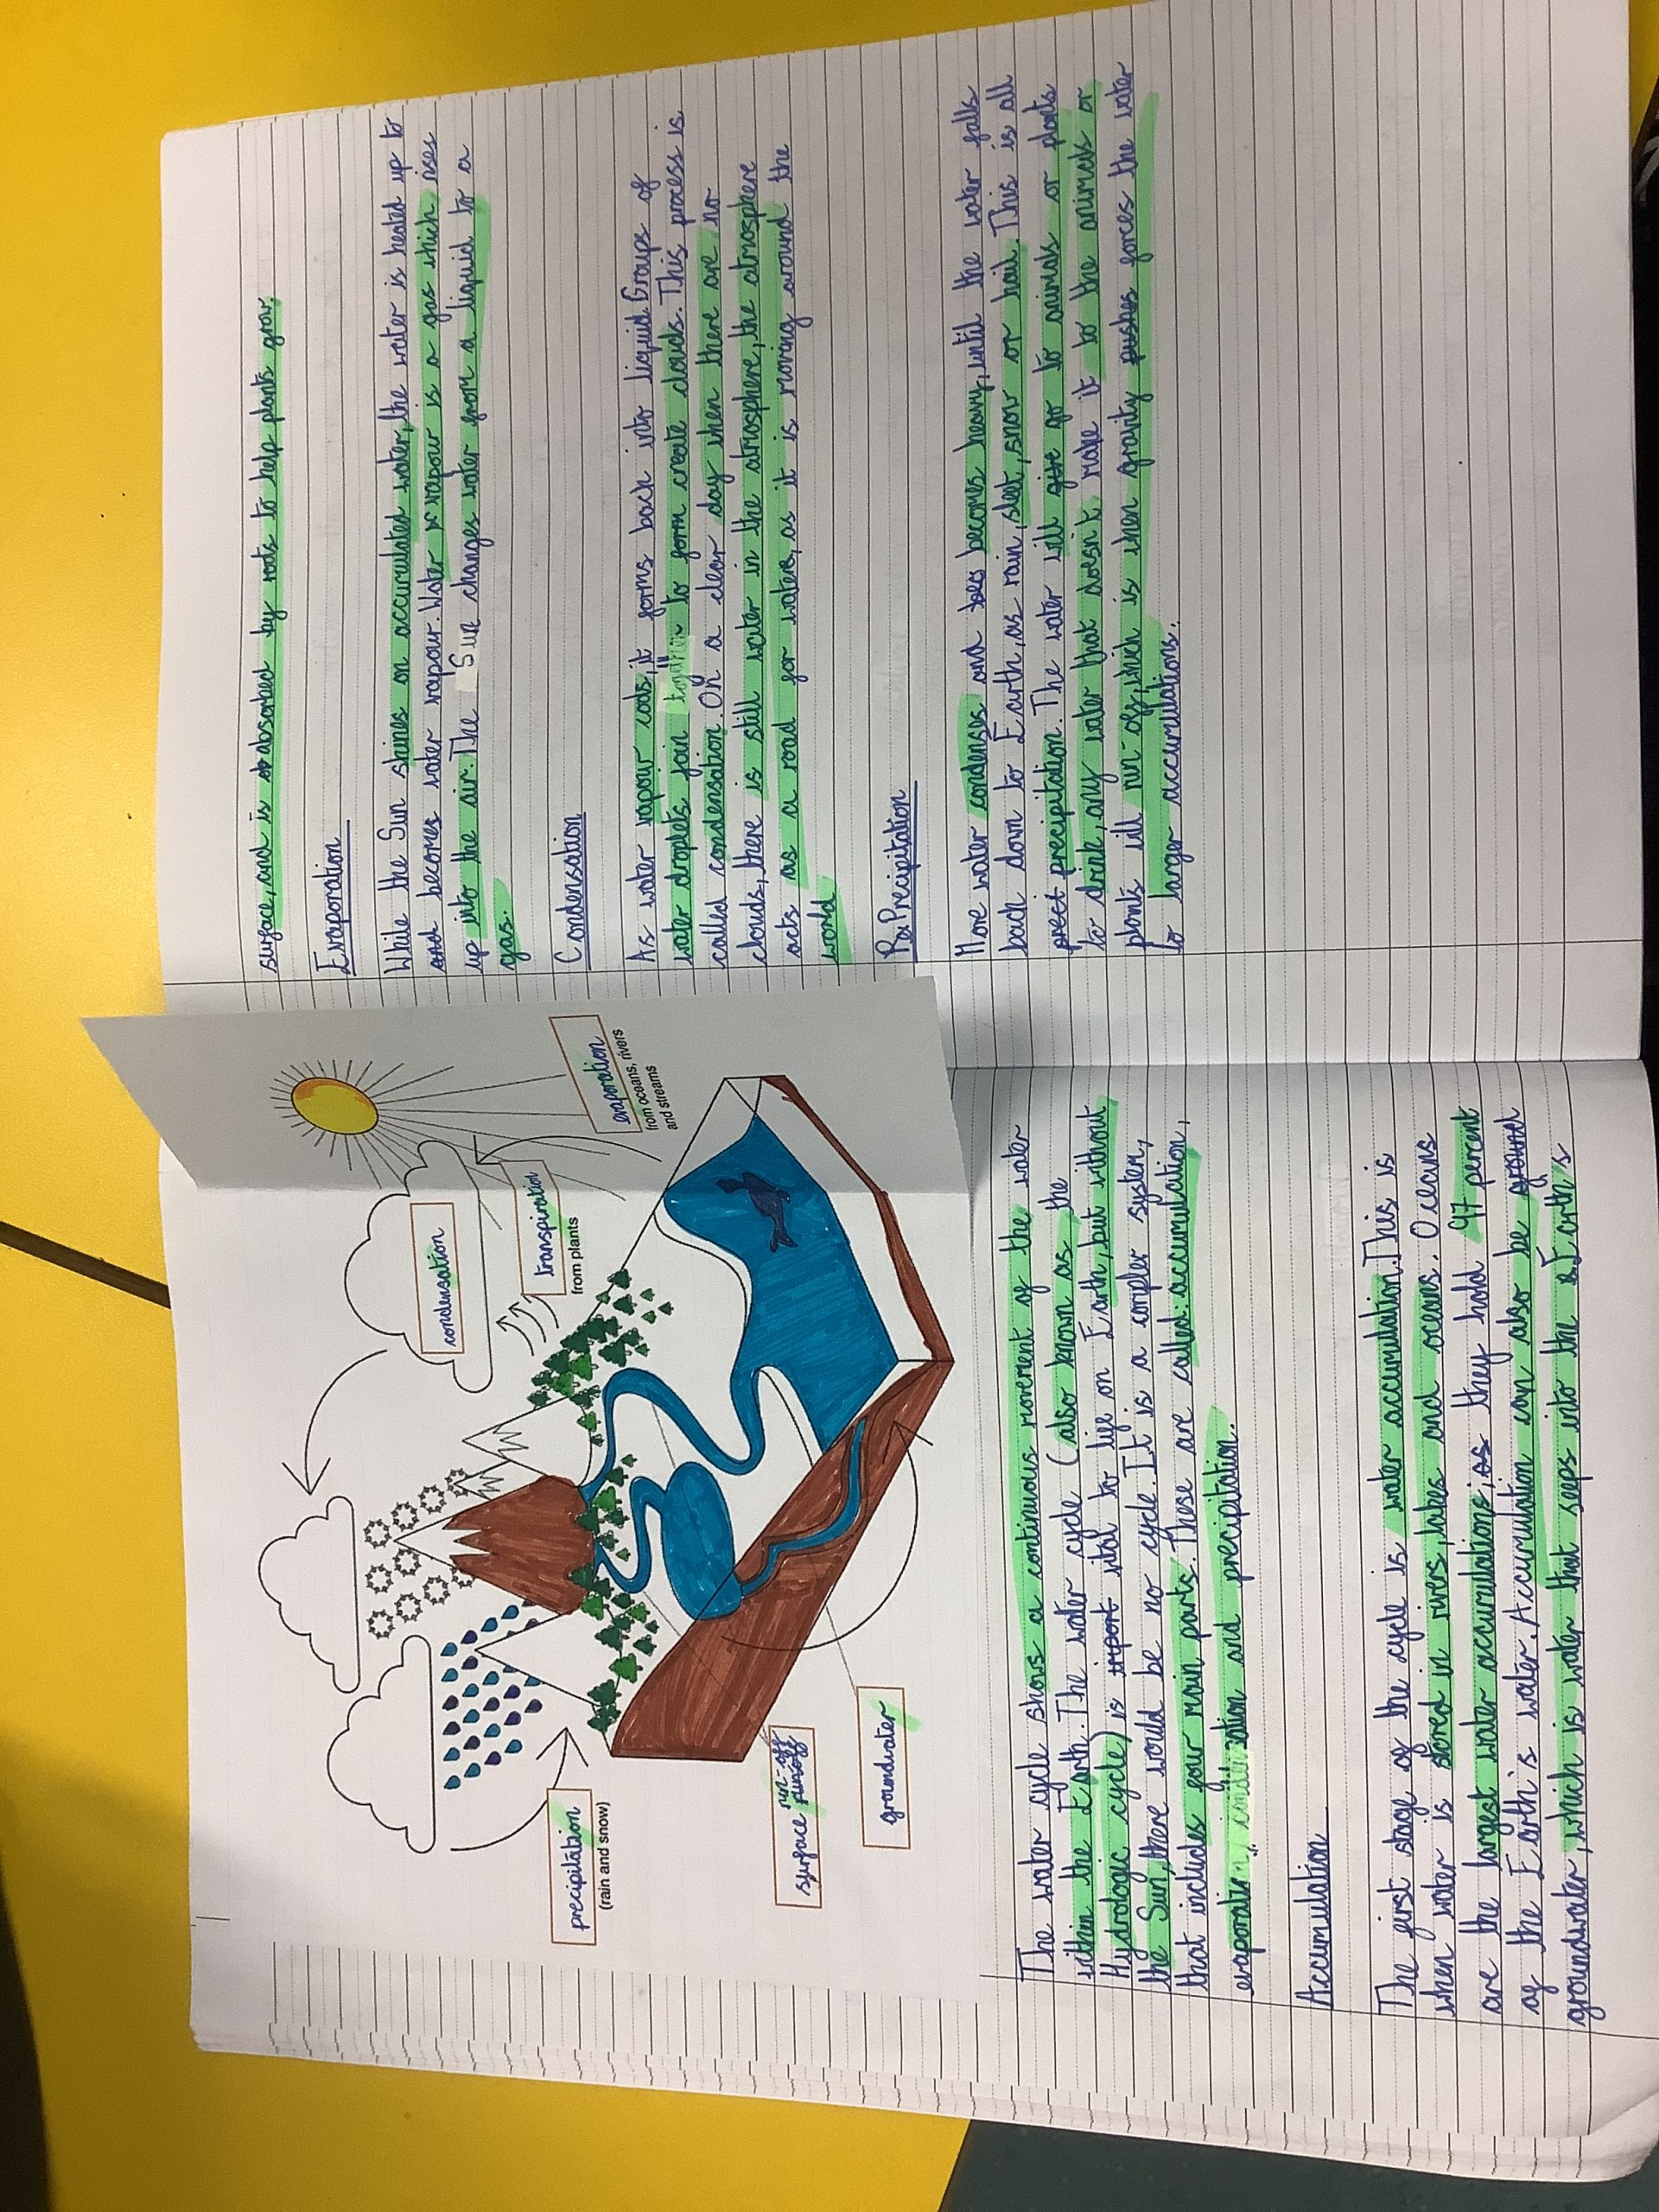 condensation
transpiration
from plants
evaporation
from oceans, rivers
and streams
precipitation
(rain and snow)
surface run-off
groundwater
The water cycle shows a continuous movement of the water
within the Earth. The water cycle (also known as the
Hydrologic cycle) is vital to life on Earth, but without
the Sun, there would be no cycle. It is a complex system,
that includes four main parts. These are called: accumulation,
evaporation, condensation and precipitation.
Accumulation
The first stage of the cycle is water accumulation. This is
when water is stored in rivers, lakes and oceans. Oceans
are the largest water accumulations, as they hold 97 percent
of the Earth's water. Accumulation can also be
groundwater, which is water that seeps into the Earth's
surface, and is absorbed by roots to help plants grow.
Evaporation
While the Sun shines on accumulated water, the water is heated up to
and becomes water vapour. Water vapour is a gas which rises
up into the air. The Sun changes water from a liquid to a
gas.
Condensation
As water vapour cools, it forms back into liquid Groups of
water droplets join together to form create clouds. This process is
called condensation. On a clear day when there are no
clouds, there is still water in the atmosphere, the atmosphere
acts as a road for water, as it is moving around the
world
Precipitation
More water condenses and becomes heavy, until the water falls
back down to Earth, as rain, sleet, snow or hail. This is all
precipitation. The water will go to animals or plants
to drink, any water that doesn't make it to the animals or
plants will run off, which is when gravity forces the water
to larger accumulations.